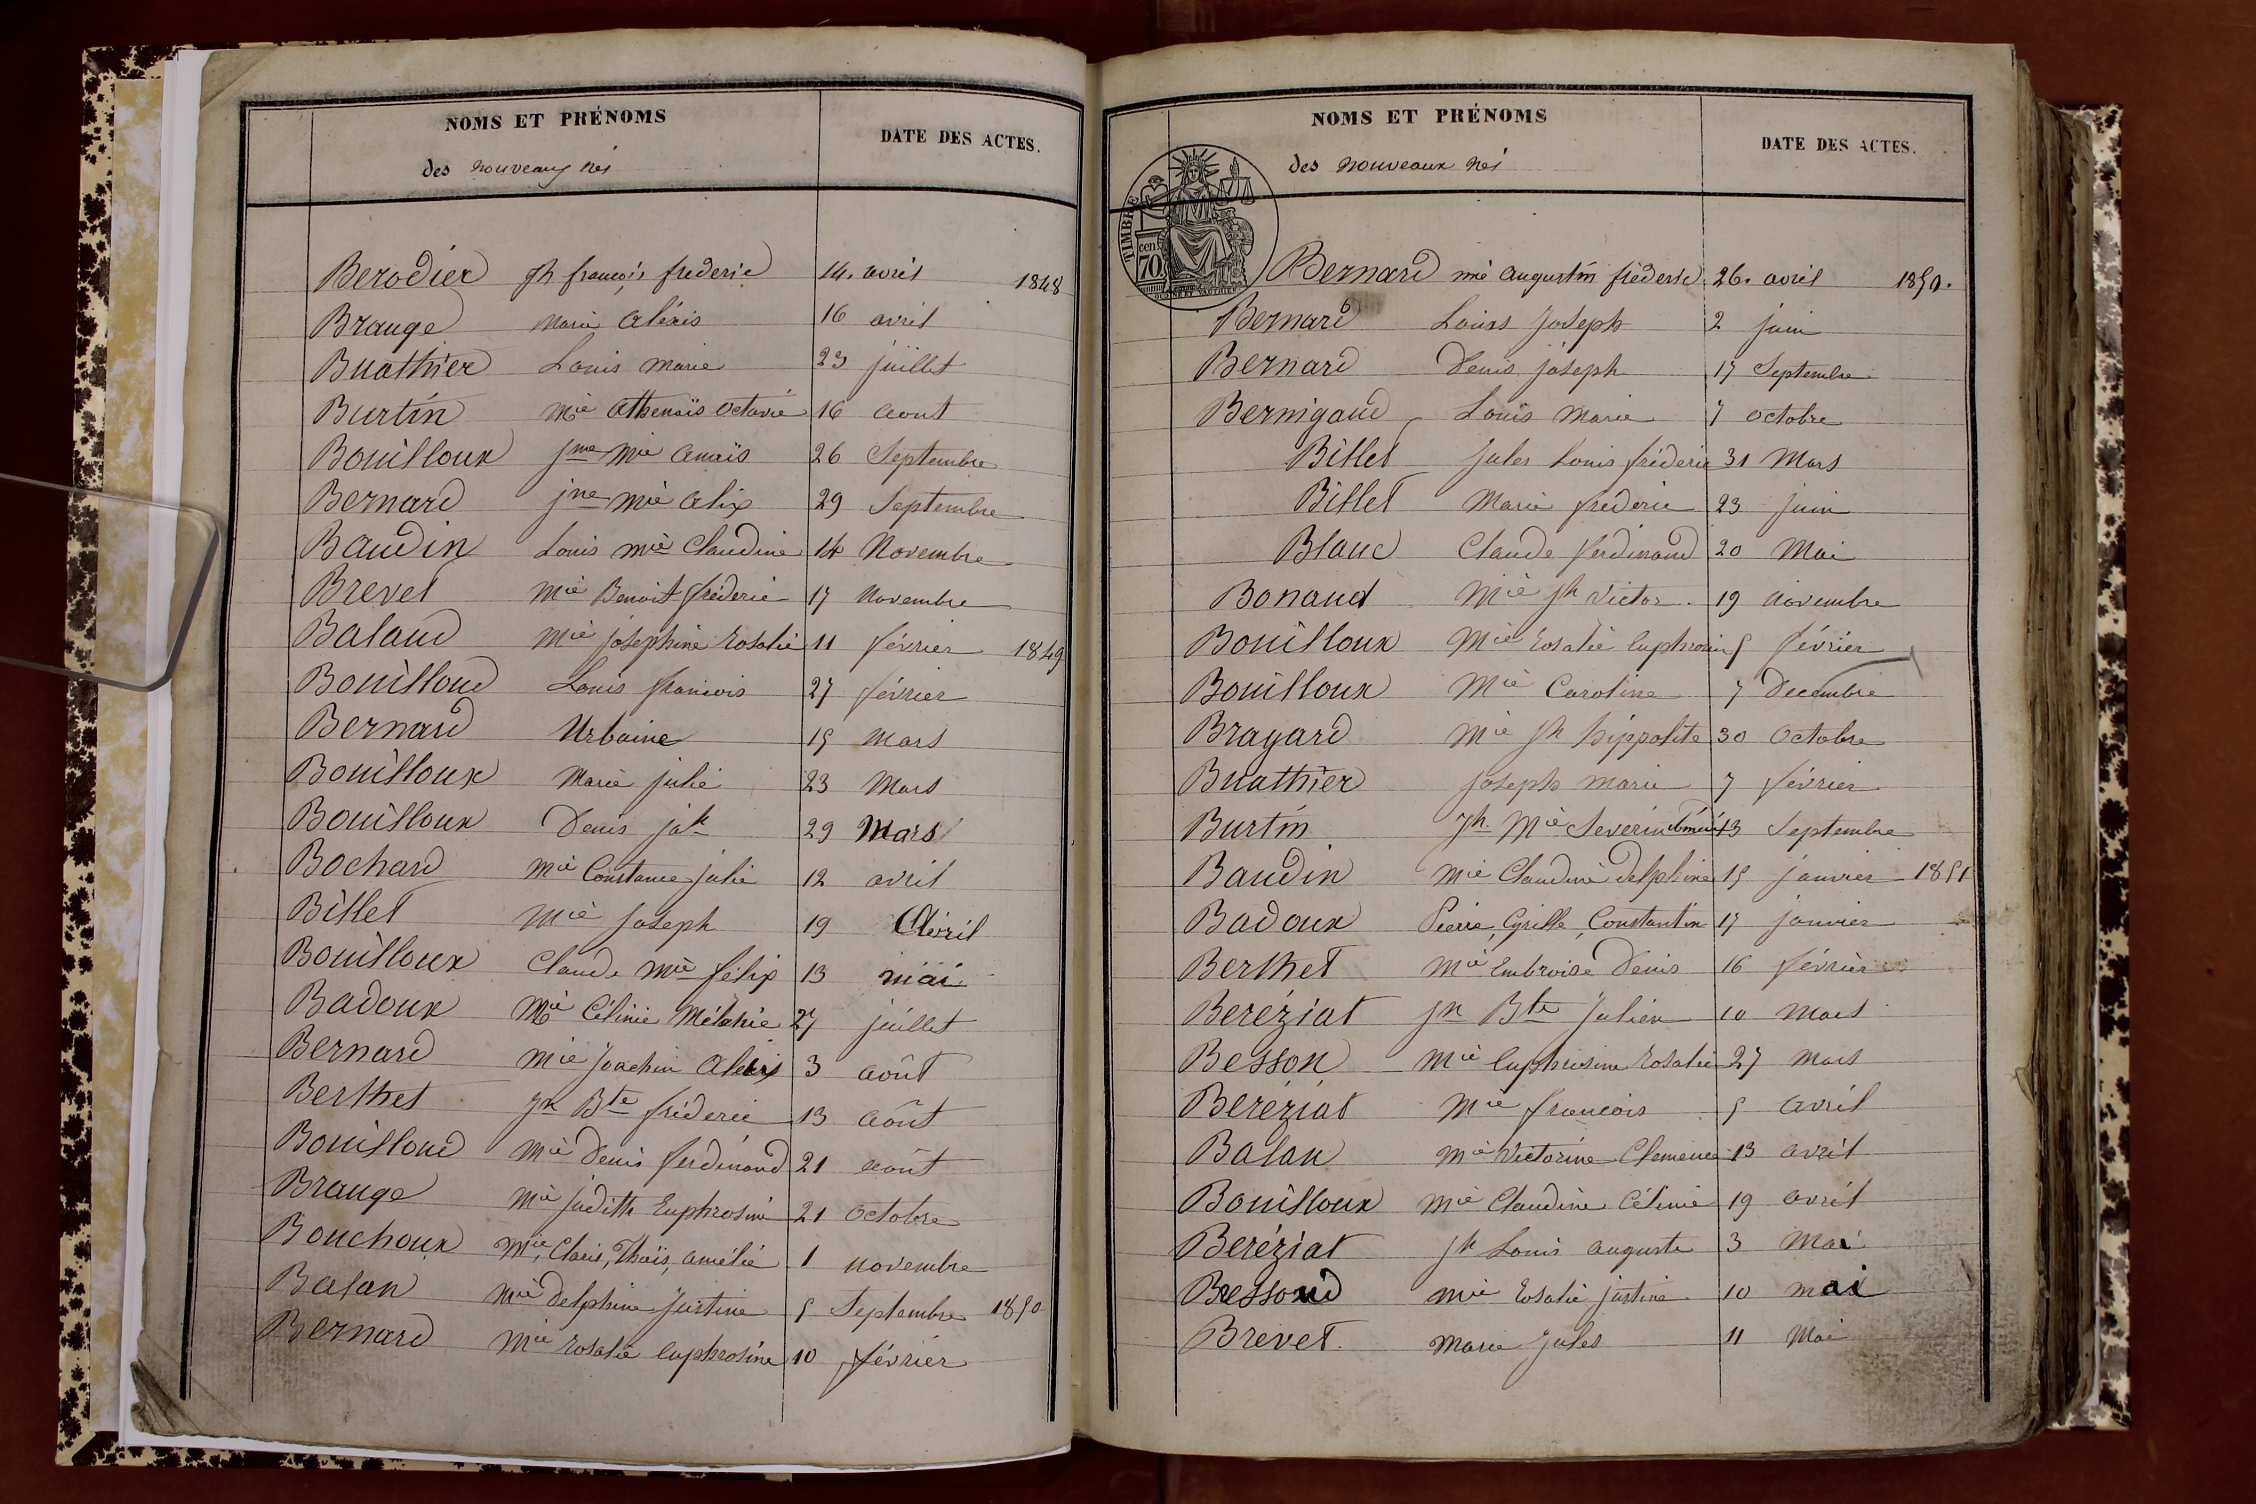 NOMS ET PRÉNOMS
DATE DES ACTES.
des nouveaux nés
Berodier jh françois frederic 14. avril 1848
Brauge Marie Alexis 16 avril
Buathier Louis Marie 23 juillet
Burtin Mie Athenaïs Octavie 16 aout
Bouilloux jne Mie Anaïs 26 Septembre
Bernard jne Mie Alix 29 Septembre
Baudin Louis Mie Claudine 14 Novembre
Brevet Mie Benoit fréderic 17 Novembre
Balaud Mie josephine rosalie 11 février 1849
Bouilloud Louis francois 27 février
Bernard Urbaine 15 Mars
Bouilloux Marie julie 23 Mars
Bouilloux Denis jph 29 Mars
Bochard Mie Constance julie 12 avril
Billet Mie Joseph 19 Avril
Bouilloux Claude Mie félix 13 mai
Badoux Mie Célinie Mélanie 27 juillet
Bernard Mie Joachim Alexis 3 août
Berthet Jn Bte fréderic 13 août
Bouilloud Mie Denis ferdinand 21 août
Brauge Mie judith Euphrosine 21 Octobre
Bouchoux Mie, Claris, Thaïs, amélie 1 novembre
Balan Mie delphine justine 5 Septembre 1850
Bernard Mie rosalie euphrosine 10 février
NOMS ET PRÉNOMS
DATE DES ACTES.
des nouveaux nés
TIMBRE
70 cen.
Bernard mie augustin fréderic 26. avril 1850.
Bernard Louis Joseph 2 juin
Bernard Denis joseph 17 Septembre
Bernigaud Louis Marie 7 octobre
Billet jules Louis fréderic 31 Mars
Billet Marie fréderic 23 juin
Blanc Claude ferdinand 20 Mai
Bonaud Mie jh victor 19 novembre
Bouilloux Mie rosalie euphrosine 5 février
Bouilloux Mie Caroline 7 Decembre
Brayard Mie Jh hippolite 30 Octobre
Buathier joseph marie 7 février
Burtin Jh Mie Severin 13 Septembre
Baudin Mie Claudine delphine 15 janvier 1851
Badoux Pierre, Cyrille, Constantin 17 janvier
Berthet Mie Embroise Denis 16 février
Beréziat Jn Bte Julien 10 Mars
Besson Mie euphrosine rosalie 27 mars
Beréziat Mie françois 5 avril
Balan Mie Victorine Clemence 13 avril
Bouilloux Mie Claudine Célinie 19 avril
Beréziat jh Louis auguste 3 Mai
Bressoud Mie rosalie justine 10 mai
Brevet. Marie Jules 11 Mai